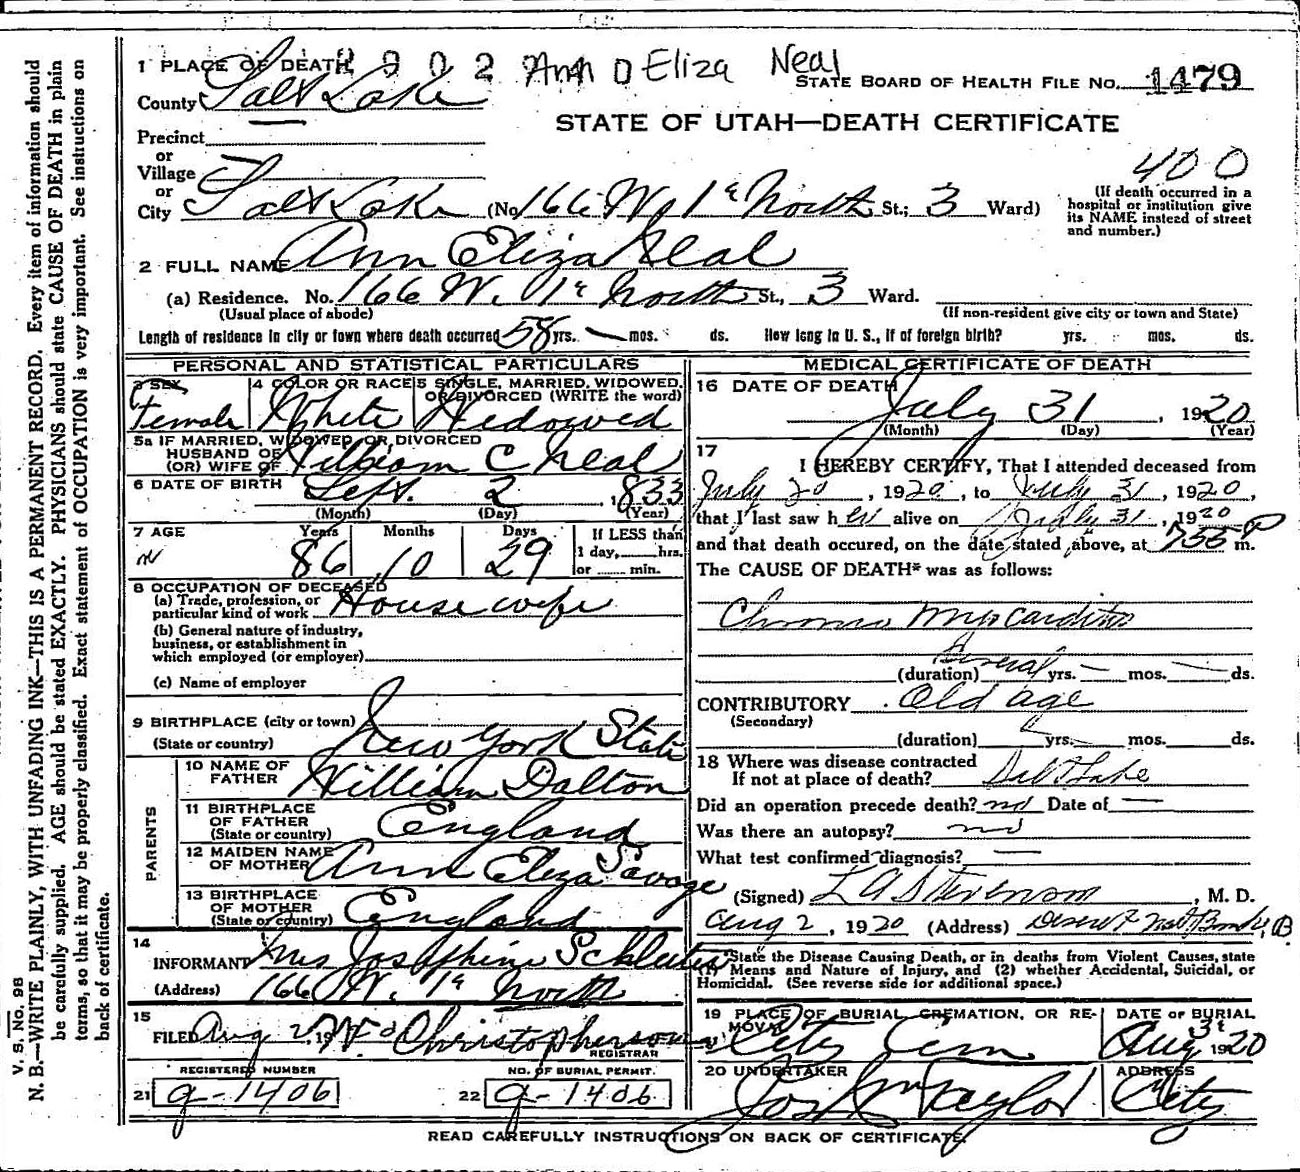 Ann D Eliza Neal
1 PLACE OF DEATH
STATE BOARD OF HEALTH FILE NO. 1479
County Salt Lake
STATE OF UTAH—DEATH CERTIFICATE
Precinct
or
Village
or
City Salt Lake (No. 166 W. 1st North St.; 3 Ward)
400
(If death occurred in a
hospital or institution give
its NAME instead of street
and number.)
2 FULL NAME Ann Eliza Neal
(a) Residence. No. 166 W. 1st North St., 3 Ward.
(Usual place of abode) (If non-resident give city or town and State)
Length of residence in city or town where death occurred 58 yrs. — mos. ds. How long in U. S., if of foreign birth? yrs. mos. ds.
PERSONAL AND STATISTICAL PARTICULARS
3 SEX Female
4 COLOR OR RACE White
5 SINGLE, MARRIED, WIDOWED,
OR DIVORCED (WRITE the word)
Widowed
5a IF MARRIED, WIDOWED, OR DIVORCED
HUSBAND OF
(OR) WIFE OF William C Neal
6 DATE OF BIRTH Sept. 2, 1833
(Month) (Day) (Year)
7 AGE Years Months Days If LESS than
86 10 29 1 day, hrs.
or min.
8 OCCUPATION OF DECEASED
(a) Trade, profession, or
particular kind of work House wife
(b) General nature of industry,
business, or establishment in
which employed (or employer)
(c) Name of employer
9 BIRTHPLACE (city or town)
(State or country) New York State
PARENTS
10 NAME OF
FATHER William Dalton
11 BIRTHPLACE
OF FATHER
(State or country) England
12 MAIDEN NAME
OF MOTHER Ann Eliza Savage
13 BIRTHPLACE
OF MOTHER
(State or country) England
14
INFORMANT Mrs Josephine
(Address) 166 W. 1st North
15
FILED Aug 2, 19 Christopherson
REGISTRAR
REGISTERED NUMBER NO. OF BURIAL PERMIT.
21 g-1406 22 g-1406
MEDICAL CERTIFICATE OF DEATH
16 DATE OF DEATH
July 31, 1920
(Month) (Day) (Year)
17
I HEREBY CERTIFY, That I attended deceased from
July 20, 1920, to July 31, 1920,
that I last saw her alive on July 31, 1920
and that death occured, on the date stated above, at 755 P m.
The CAUSE OF DEATH* was as follows:
Chronic Myocarditis
(duration) Several yrs. — mos. — ds.
CONTRIBUTORY Old age
(Secondary)
(duration) yrs. mos. ds.
18 Where was disease contracted
If not at place of death? Salt Lake
Did an operation precede death? no Date of —
Was there an autopsy? no
What test confirmed diagnosis? —
(Signed) L A Stevenson, M. D.
Aug 2, 1920 (Address) Deseret Nat'l Bank B
*State the Disease Causing Death, or in deaths from Violent Causes, state
(1) Means and Nature of Injury, and (2) whether Accidental, Suicidal, or
Homicidal. (See reverse side for additional space.)
19 PLACE OF BURIAL, CREMATION, OR RE-
MOVAL City Cem
DATE OF BURIAL
Aug 3d 1920
20 UNDERTAKER
Jos Wm Taylor
ADDRESS
City
READ CAREFULLY INSTRUCTIONS ON BACK OF CERTIFICATE.
V. S. No. 98
N. B.—WRITE PLAINLY, WITH UNFADING INK—THIS IS A PERMANENT RECORD. Every item of information should
be carefully supplied. AGE should be stated EXACTLY. PHYSICIANS should state CAUSE OF DEATH in plain
terms, so that it may be properly classified. Exact statement of OCCUPATION is very important. See instructions on
back of certificate.